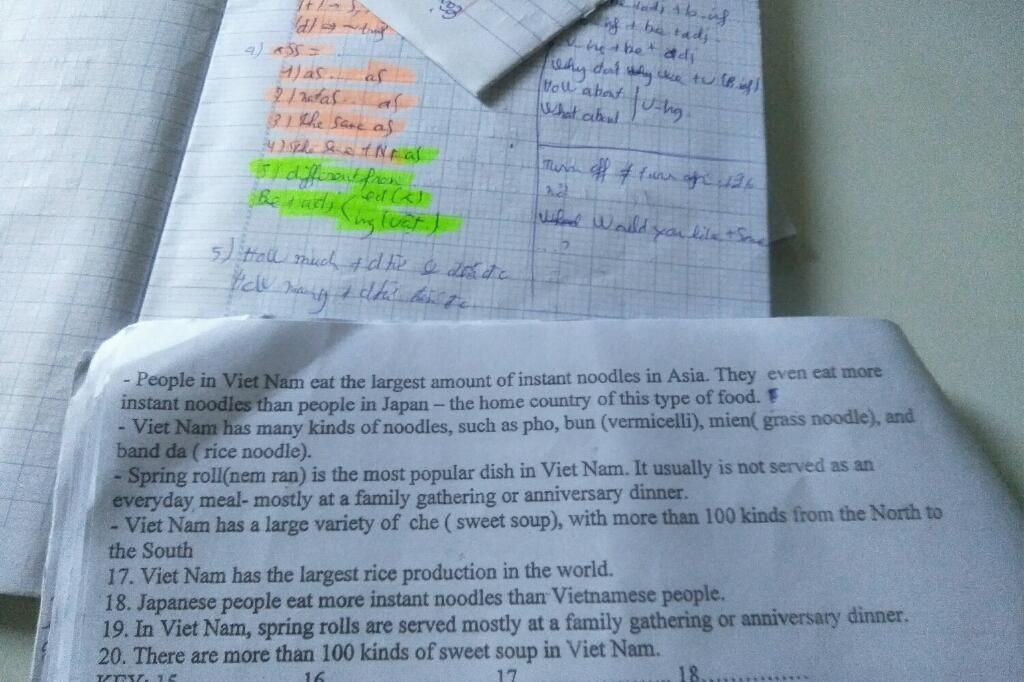 4)
1) as ... as
as
3) the same as
4) the same + N + as
5) different from
Be + adj < ed (
ing (vật)
5) How much +
How many +
be + adj
be + adj
Why don't
How about
What about
V-ing
Turn off ≠ turn
Would you like + Some
...?
- People in Viet Nam eat the largest amount of instant noodles in Asia. They even eat more
instant noodles than people in Japan – the home country of this type of food.
- Viet Nam has many kinds of noodles, such as pho, bun (vermicelli), mien( grass noodle), and
band da ( rice noodle).
- Spring roll(nem ran) is the most popular dish in Viet Nam. It usually is not served as an
everyday meal- mostly at a family gathering or anniversary dinner.
- Viet Nam has a large variety of che ( sweet soup), with more than 100 kinds from the North to
the South
17. Viet Nam has the largest rice production in the world.
18. Japanese people eat more instant noodles than Vietnamese people.
19. In Viet Nam, spring rolls are served mostly at a family gathering or anniversary dinner.
20. There are more than 100 kinds of sweet soup in Viet Nam.
KEY: 15 16 17 18..............